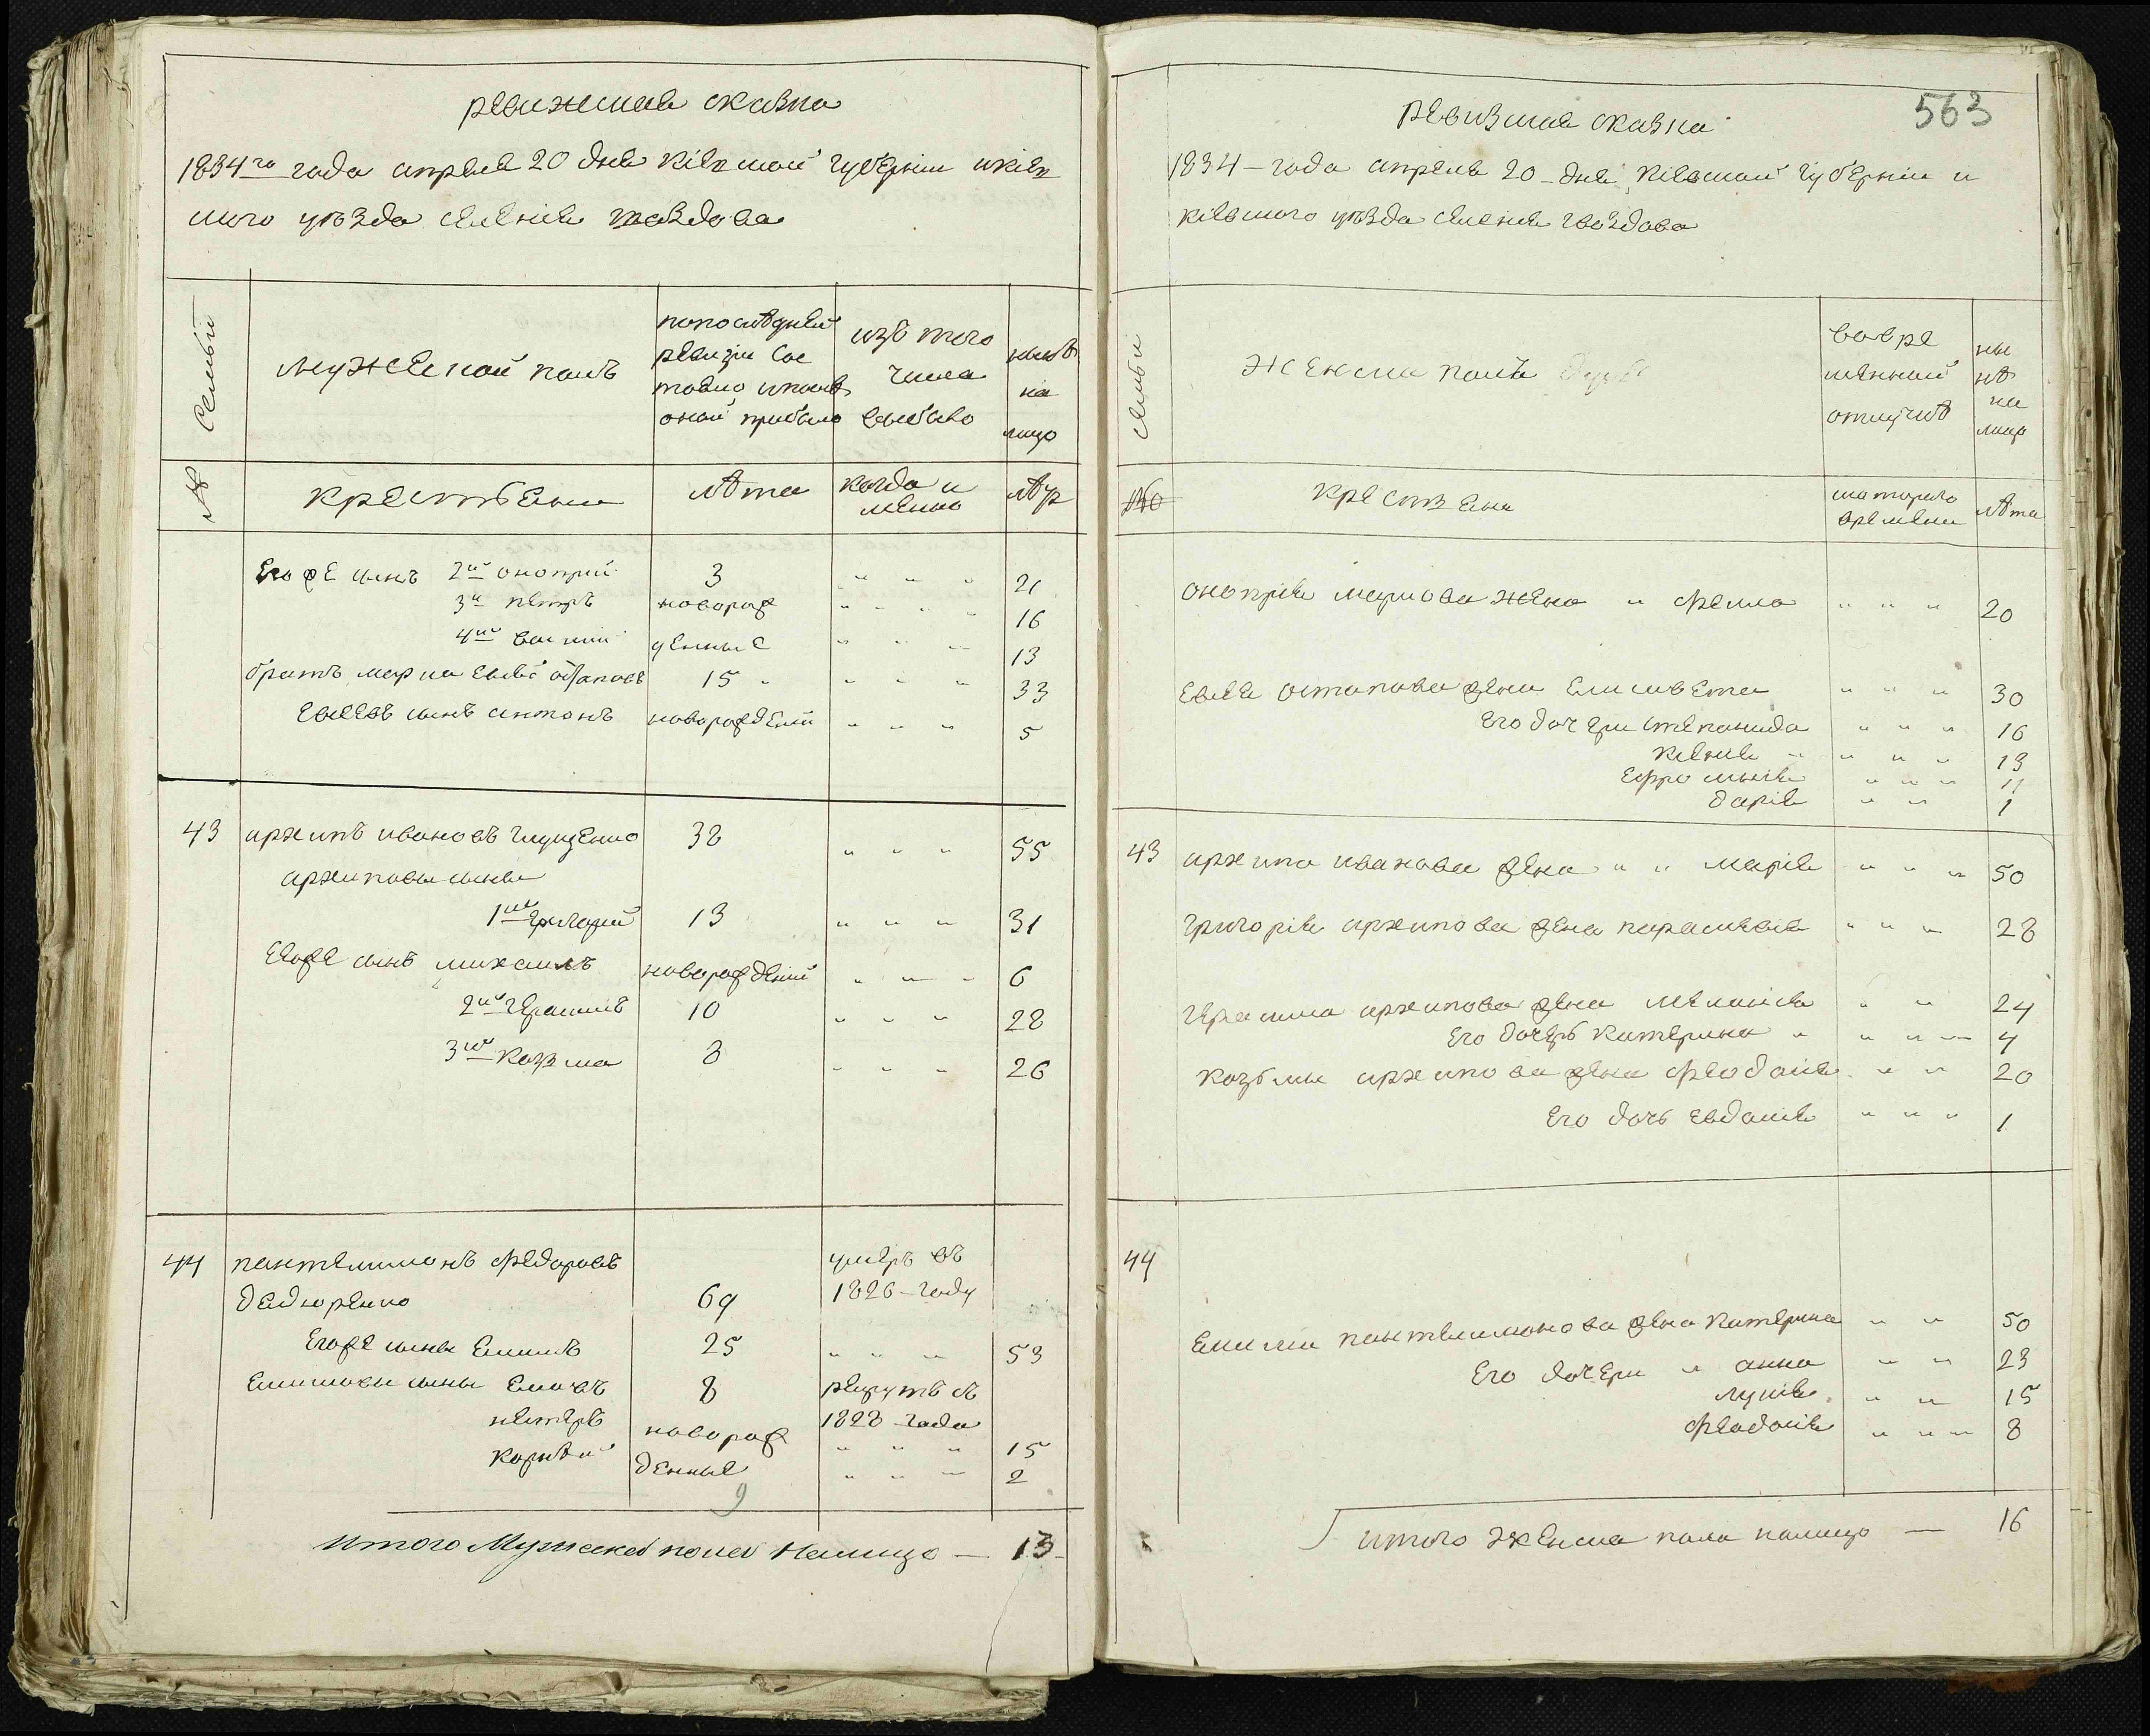 ревижская сказка
1834го года апреля 20 дня кіев
ского уѣзда селенія гвоздова
Семьи
мужеской полъ
попослѣдней
ревизіи сос
тояло ипослѣ
оной прибыло
изъ того
числа
выбыло
нынѣ
на
лицо
№
крестьяни
лѣта
когда и
менно
лѣт
Его же сынъ 2й оноприй 3 " " " 21
3й петръ новорож " " " 16
4й денные " " " 13
братъ марка евсей остаповъ 15 " " " 33
евсеевъ сынъ антонъ новорожденій " " " 5
43 архипъ ивановъ глущенко 38 " " " 55
архиповы сыни
1й григорий 13 " " " 31
Егоже сынъ михаилъ новорожденій " " " 6
2й герасимъ 10 " " " 28
3й козма 8 " " " 26
44 пантелимонъ федоровъ умеръ въ
69 1826 году
Егоже сыны Екимъ 25 " " " 53
Екимовы сыны 8 рекрутъ съ
петеръ новорож 1828 года
" " " 15
корнѣй денные " " " 2
9
Итого Мужеска полу Налицо — 13
563
ревизская сказка
1834 года апреля 20 дня кіевской губерніи и
кіевского уѣзда селенія гвоздова
семьи
женска полъ
вовре
менной
отлучкѣ
ны
нѣ
на
лицо
№
крестьяни
скоторого
времени
лѣта
оноприя маркова жена " фекла " " " 20
Евсея остапова жена елисавета " " " 30
Его дочери степанида " " " 16
ксенія " " " " 13
ефросинія " " " 11
дарія " " 1
43 архипа иванова жена " " марія " " " 50
григорія архипова жена параскевія " " " 28
герасима архипова жена меланія " " 24
Его дочеръ катерина " " " " 4
козьмы архипова жена феодосія " " 20
Его дочь евдокія " " " 1
44
Екима пантелимонова жена катерина " " 50
Его дочери " анна " " 23
лукія " " 15
феодосія " " " 8
итого женска пола налицо — 16